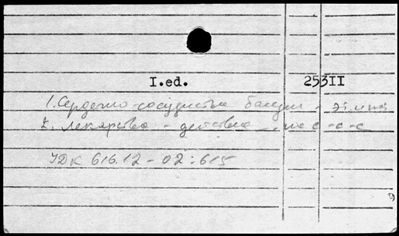 I.ed. 253II
1. Сердечно-сосудистые болезни -
2. Лекарства - действие - на с-с-с
УДК 616.12-02:615